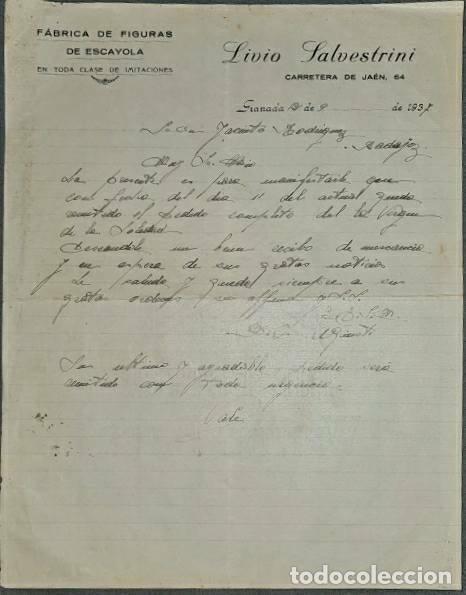 FÁBRICA DE FIGURAS
DE ESCAYOLA
EN TODA CLASE DE IMITACIONES
Livio Salvestrini
CARRETERA DE JAÉN, 64
Granada de 9 de 193
Jacinto Rodriguez
Badajoz
Muy Sr. Mio
La presente es para manifestarle que
con fecha del dia 11 del actual queda
remitido su pedido completo de la Virgen
de la Soledad
Deseandole un buen recibo de mercancia
y en espera de sus gratas noticias
Le saluda y queda siempre a sus
gratas ordenes su affmo. s. s.
Su ultimo y agradable pedido será
remitido con toda urgencia.
Vale
todocoleccion.net